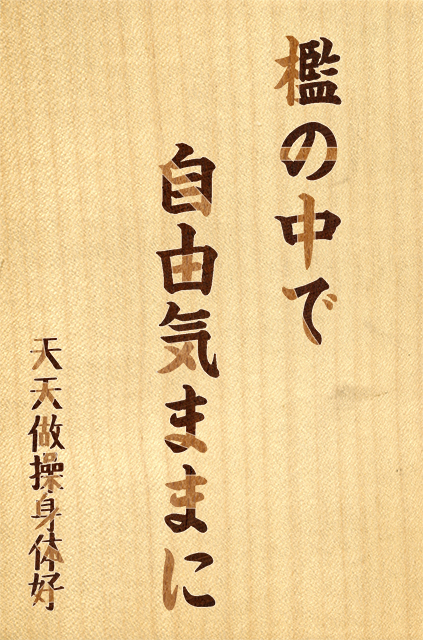 檻の中で
自由気ままに
天天做操身体好